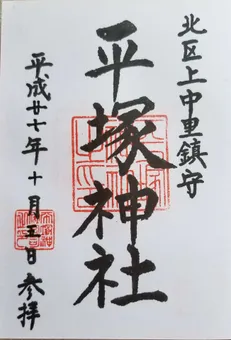 北区上中里鎮守
平塚神社
平成廿七年十月五日参拝